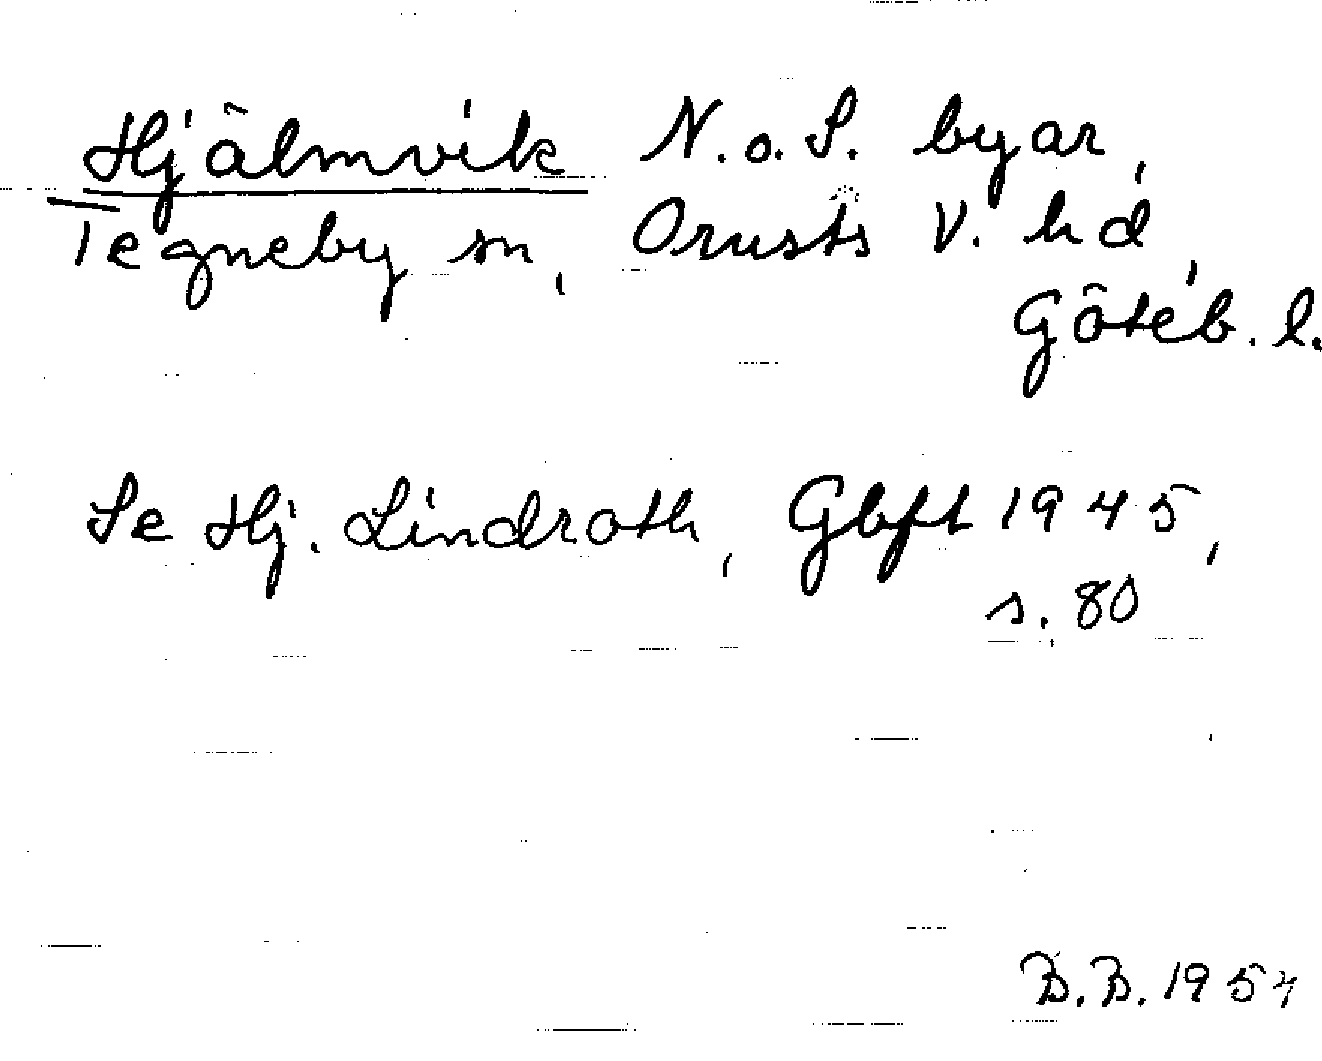 Hjälmvik N. o. S. byar,
Tegneby sn, Orusts V. hd,
Göteb. l.
Se Hj. Lindroth, Gbft 1945,
s. 80
B.B. 1954